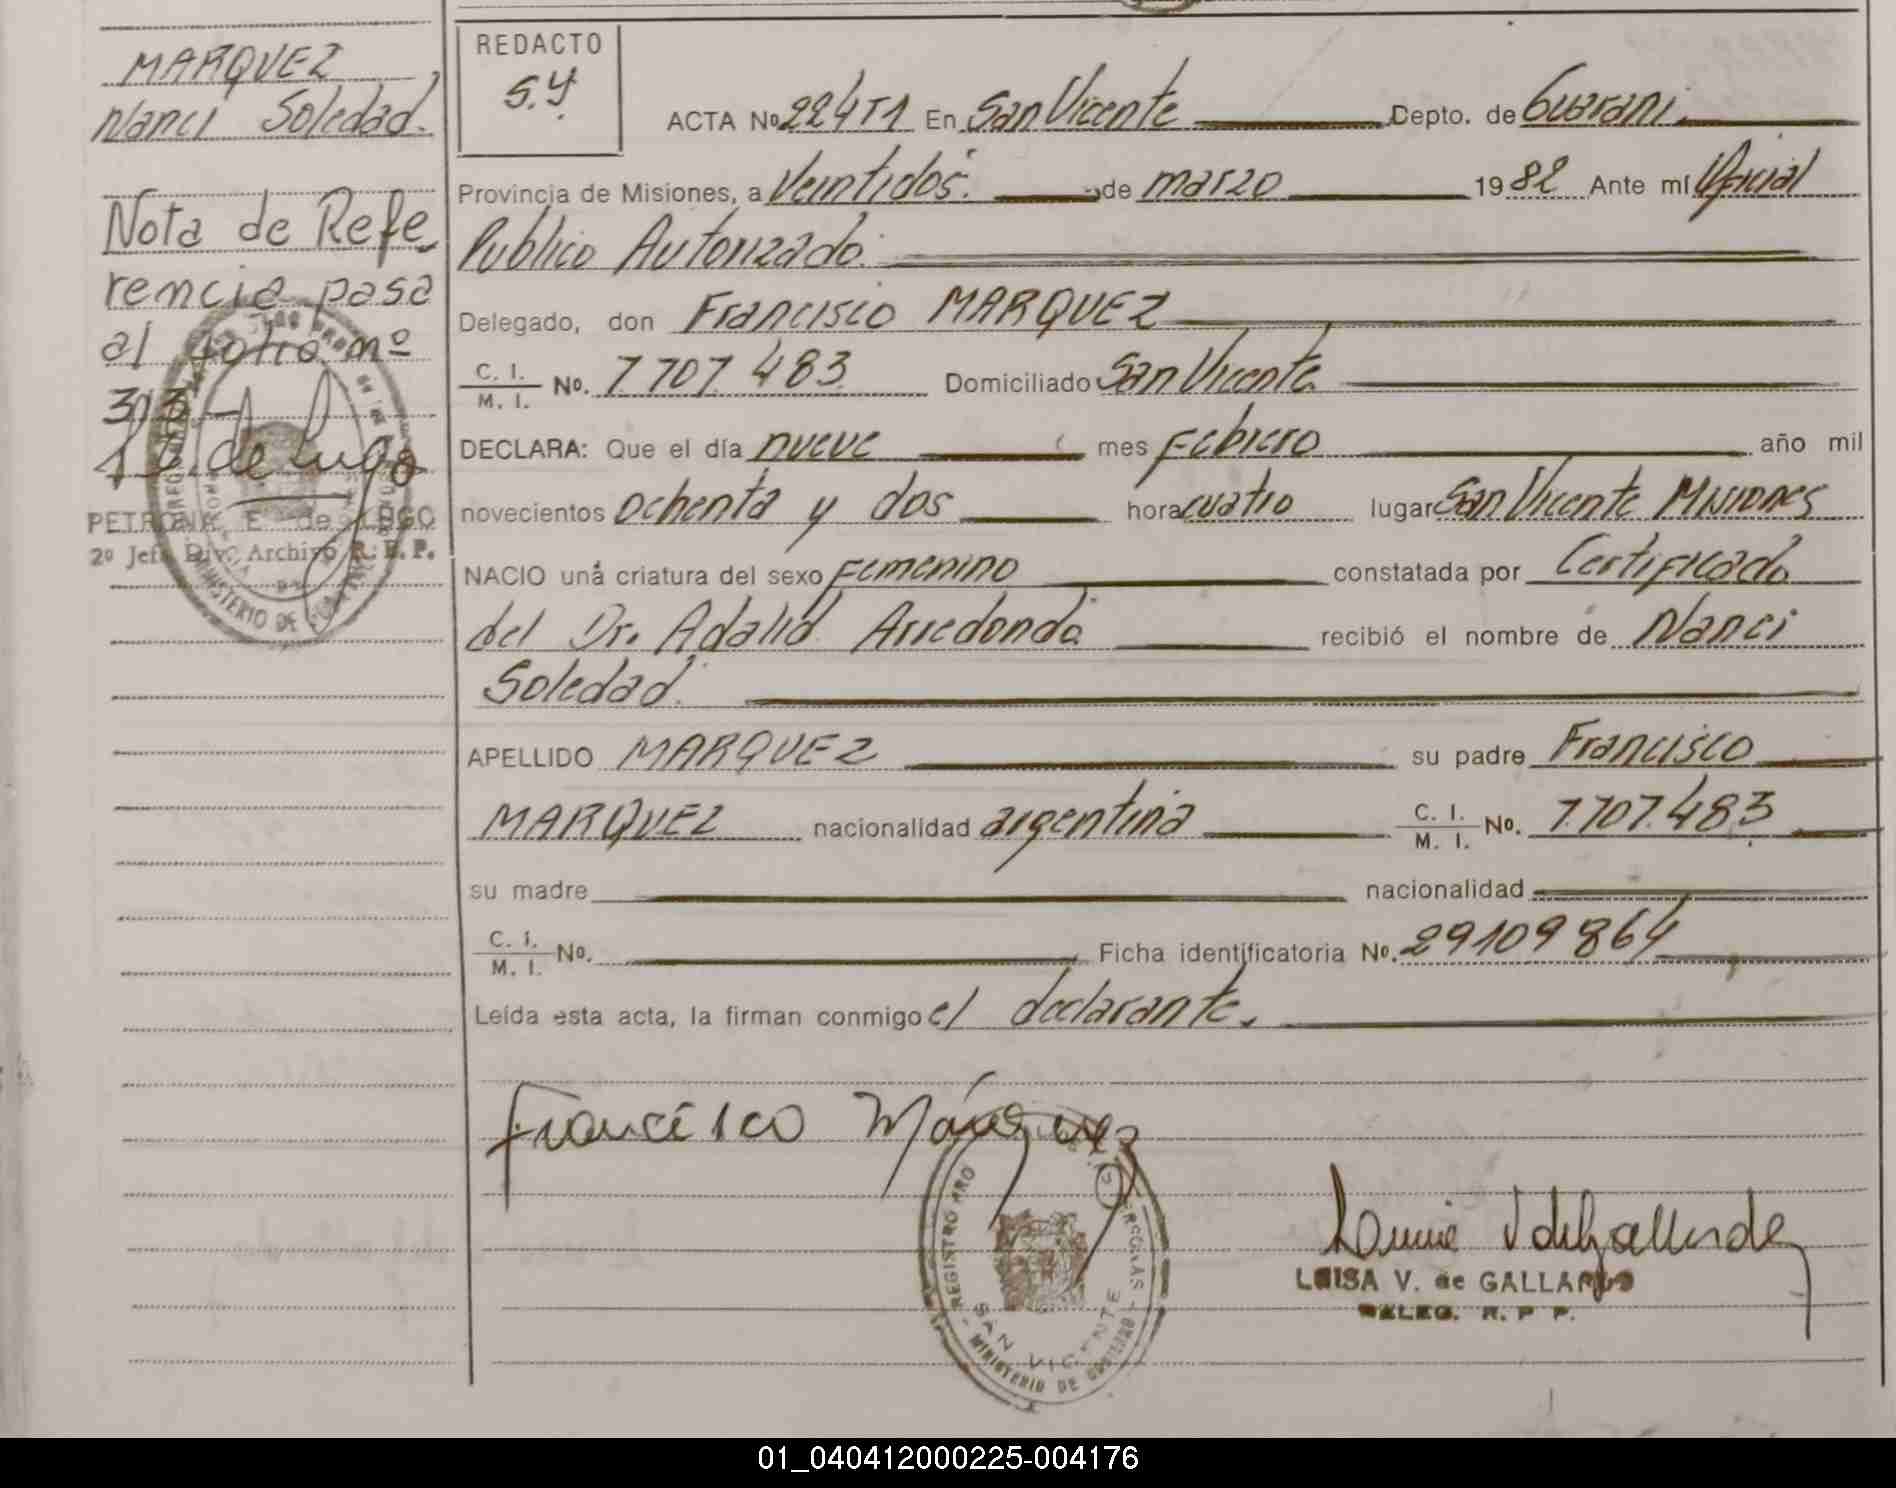 MARQUEZ,
Nanci Soledad.
Nota de Refe
rencia pasa
al folio nº
313-
PETRONA E. de LUGO
2º Jefe Div. Archivo R. E. P.
REDACTO
S.Y.
ACTA Nº 224T1 En San Vicente Depto. de Guarani.
Provincia de Misiones, a Veintidos. de marzo 1982 Ante mí Oficial
Publico Autorizado.
Delegado, don Francisco MARQUEZ
C. I. / M. I. Nº. 7.707.483 Domiciliado San Vicente
DECLARA: Que el día nueve mes Febrero año mil
novecientos ochenta y dos hora cuatro lugar San Vicente Misiones
NACIO una criatura del sexo Femenino constatada por Certificado
del Dr. Adalid Arredondo recibió el nombre de Nanci
Soledad.
APELLIDO MARQUEZ su padre Francisco
MARQUEZ nacionalidad argentina C. I. / M. I. Nº. 7.707.483
su madre nacionalidad
C. I. / M. I. Nº. Ficha identificatoria Nº. 29109864
Leída esta acta, la firman conmigo el declarante.
Francisco Márquez
REGISTRO PERSONAS
SAN VICENTE
MINISTERIO DE GOBIERNO
LUISA V. de GALLARDO
DELEG. R. P. P.
01_040412000225-004176